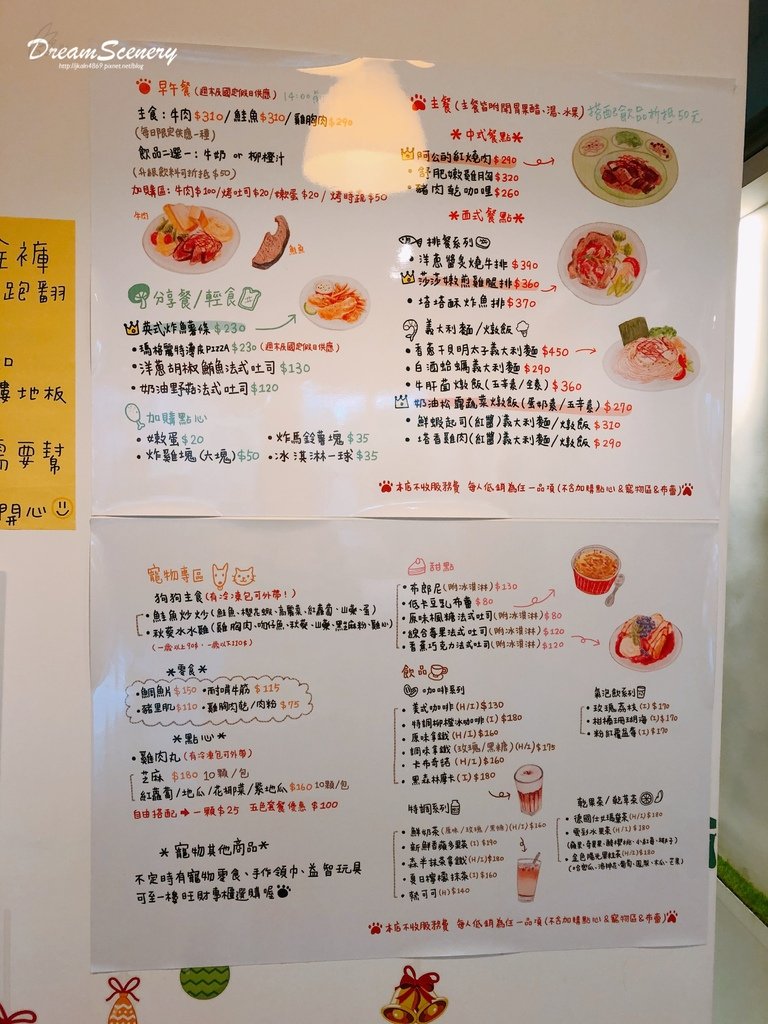 DreamScenery
http://jkaln4869.pixnet.net/blog
早午餐 (週末及國定假日供應) 14:00前
主食：牛肉$310/鮭魚$310/雞胸肉$290
(每日限定供應一種)
飲品二選一：牛奶 or 柳橙汁
(升級飲料可折抵$50)
加購區：牛肉$100/烤吐司$20/嫩蛋$20/烤時蔬$50
牛肉
鮭魚
分享餐/輕食
英式炸薯條 $230
•瑪格麗特薄皮PIZZA $230 (週末及國定假日供應)
•洋蔥胡椒鮪魚法式吐司 $130
•奶油野菇法式吐司 $120
加購點心
•嫩蛋$20
•炸馬鈴薯塊$35
•炸雞塊(六塊)$50
•冰淇淋一球$35
主餐 (主餐皆附開胃果醋、湯、水果) 搭配飲品折抵50元
*中式餐點*
阿公的紅燒肉 $290
•舒肥嫩雞胸 $320
•豬肉乾咖哩 $260
*西式餐點*
排餐系列
•洋蔥醬炙燒牛排 $390
莎莎嫩煎雞腿排 $360
•塔塔酥炸魚排 $370
義大利麵/燉飯
•香蔥干貝明太子義大利麵 $450
•白酒蛤蠣義大利麵 $290
•牛肝菌燉飯(五辛素/全素) $360
奶油松露蔬菜燉飯(蛋奶素/五辛素) $270
•鮮蝦起司(紅醬)義大利麵/燉飯 $310
•塔香雞肉(紅醬)義大利麵/燉飯 $290
本店不收服務費 每人低銷為任一品項(不含加購點心&寵物區&布蕾)
全褲
跑翻
樓地板
需要幫
開心
寵物專區
狗狗主食(有冷凍包可外帶！)
•鮭魚炒炒(鮭魚、櫻花蝦、高麗菜、紅蘿蔔、山藥、蛋)
•秋葵水水雞(雞胸肉、吻仔魚、秋葵、山藥、黑芝麻粉、雞心)
(一歲以上90$．一歲以下110$)
*零食*
•鯛魚片$150 •耐嚼牛筋 $115
•豬里肌$110 •雞胸肉乾/肉粉 $75
*點心*
•雞肉丸(有冷凍包可外帶)
芝麻 $180 10顆/包
紅蘿蔔/地瓜/花椰菜/紫地瓜 $160 10顆/包
自由搭配→一顆$25 五色套餐優惠 $100
*寵物其他商品*
不定時有寵物零食、手作領巾、益智玩具
可至一樓旺財專櫃選購喔
甜點
•布郎尼(附冰淇淋)$130
•低卡豆乳布蕾 $80
•原味楓糖法式吐司(附冰淇淋)$80
•綜合莓果法式吐司(附冰淇淋)$120
•香蕉巧克力法式吐司(附冰淇淋)$120
飲品
咖啡系列
•美式咖啡(H/I)$130
•特調柳橙冰咖啡(I)$180
•原味拿鐵(H/I)$160
•調味拿鐵(玫瑰/黑糖)(H/I)$175
•卡布奇諾(H/I)$160
•黑森林摩卡(I)$180
特調系列
•鮮奶茶(原味/玫瑰/黑糖)(H/I)$160
•新鮮香蕉多果(I)$190
•森半抹茶拿鐵(H/I)$180
•夏日檸檬抹茶(I)$160
•熱可可(H)$140
氣泡飲系列
•玫瑰荔枝(I)$170
•柑橘珊瑚海(I)$170
•粉紅覆盆莓(I)$170
乾果茶/乾草茶
•德國仕女瑪黛茶(H/I)$180
•愛到水果茶(H/I)$180
•金色陽光果粒茶(H/I)$180
本店不收服務費 每人低銷為任一品項(不含加購點心&寵物區&布蕾)